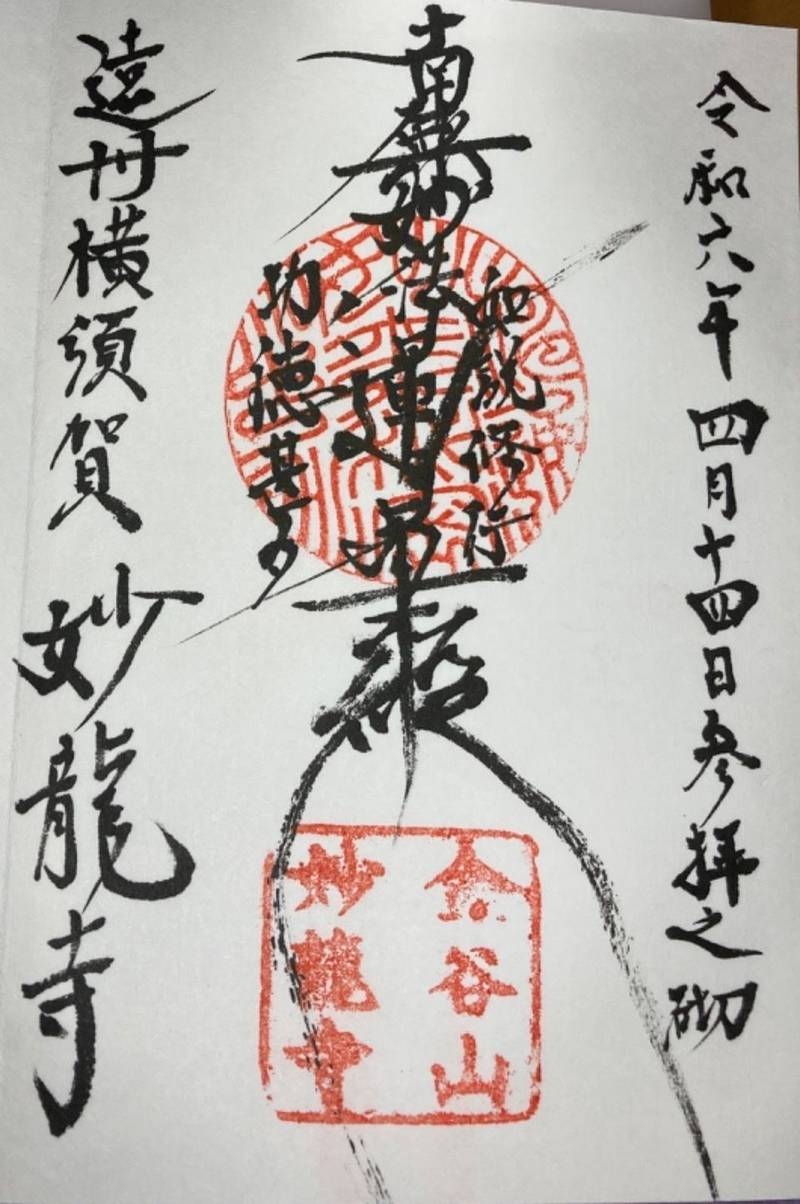 令和六年四月十四日参拝之砌
如説修行
南無妙法蓮華経
功徳甚多
遠州横須賀 妙龍寺
金谷山
妙龍寺